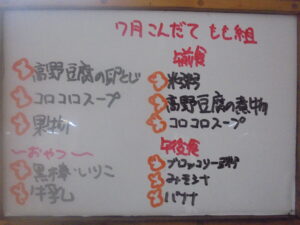 7月こんだて もも組
高野豆腐の卵とじ
コロコロスープ
果物
〜おやつ〜
黒棒・いりこ
牛乳
午前食
粉粥
高野豆腐の煮物
コロコロスープ
午後食
ブロッコリー豆粥
みそシチ
バナナ